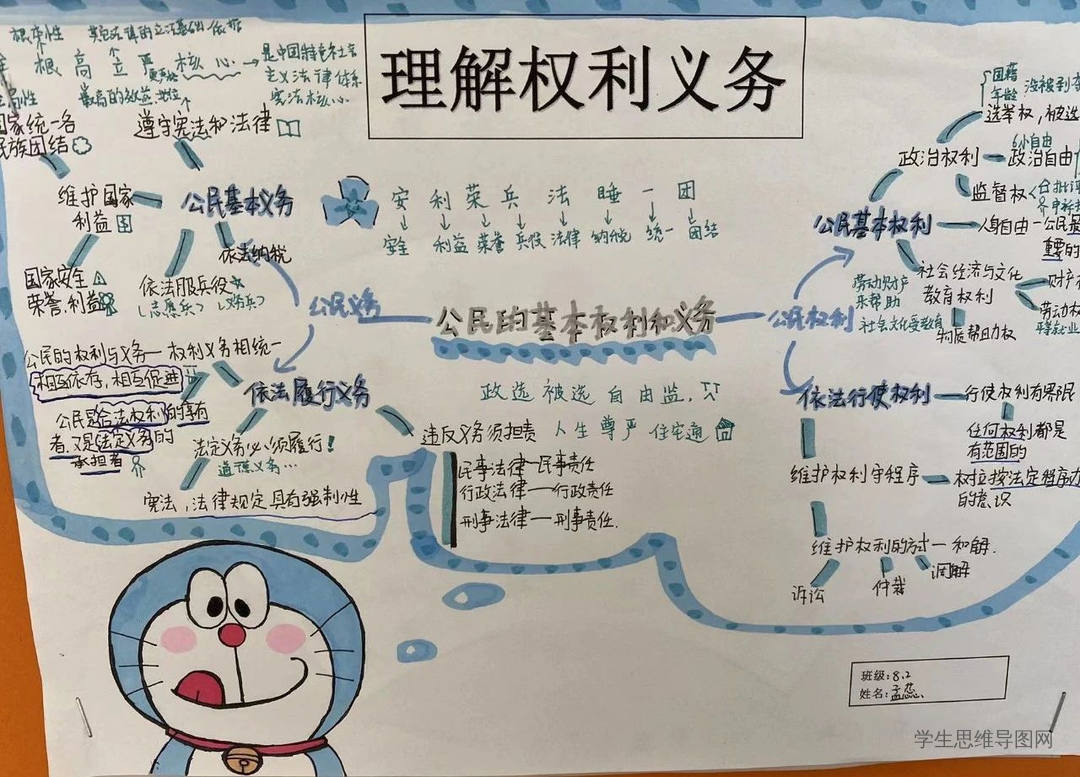 理解权利义务
根本性 其他法律的立法基础和依据
根 高 立 严 核心
是中国特色社会
主义法律体系
宪法核心
最高的效益地位
国家统一各
民族团结
遵守宪法和法律
维护国家
利益
公民基本义务
依法纳税
国家安全
荣誉.利益
依法服兵役
(志愿兵) (义务兵)
公民义务
公民的权利与义务—权利义务相统一
相互依存,相互促进
公民是合法权利的享有
者.又是法定义务的
承担者
依法履行义务
法定义务必须履行!
道德义务…
宪法,法律规定具有强制性
违反义务须担责
民事法律—民事责任
行政法律—行政责任
刑事法律—刑事责任.
安 利 荣 兵 法 睡 一 团
安全 利益 荣誉 兵役 法律 纳税 统一 团结
公民的基本权利和义务
政选 被选 自由监.
人生 尊严 住宅通
公民权利
公民基本权利
政治权利
国籍
年龄
选举权,被选
政治自由
监督权
人身自由—公民最
重要的
社会经济与文化
教育权利
财产
劳动权
物质帮助权
劳动财产
来帮助
社会文化受教育
依法行使权利
行使权利有界限
任何权利都是
有范围的
维护权利守程序
权拉按法定程序力
的意识
维护权利的方式—和解.
诉讼
仲裁
调解
班级:8.2
姓名:孟蕊
学生思维导图网